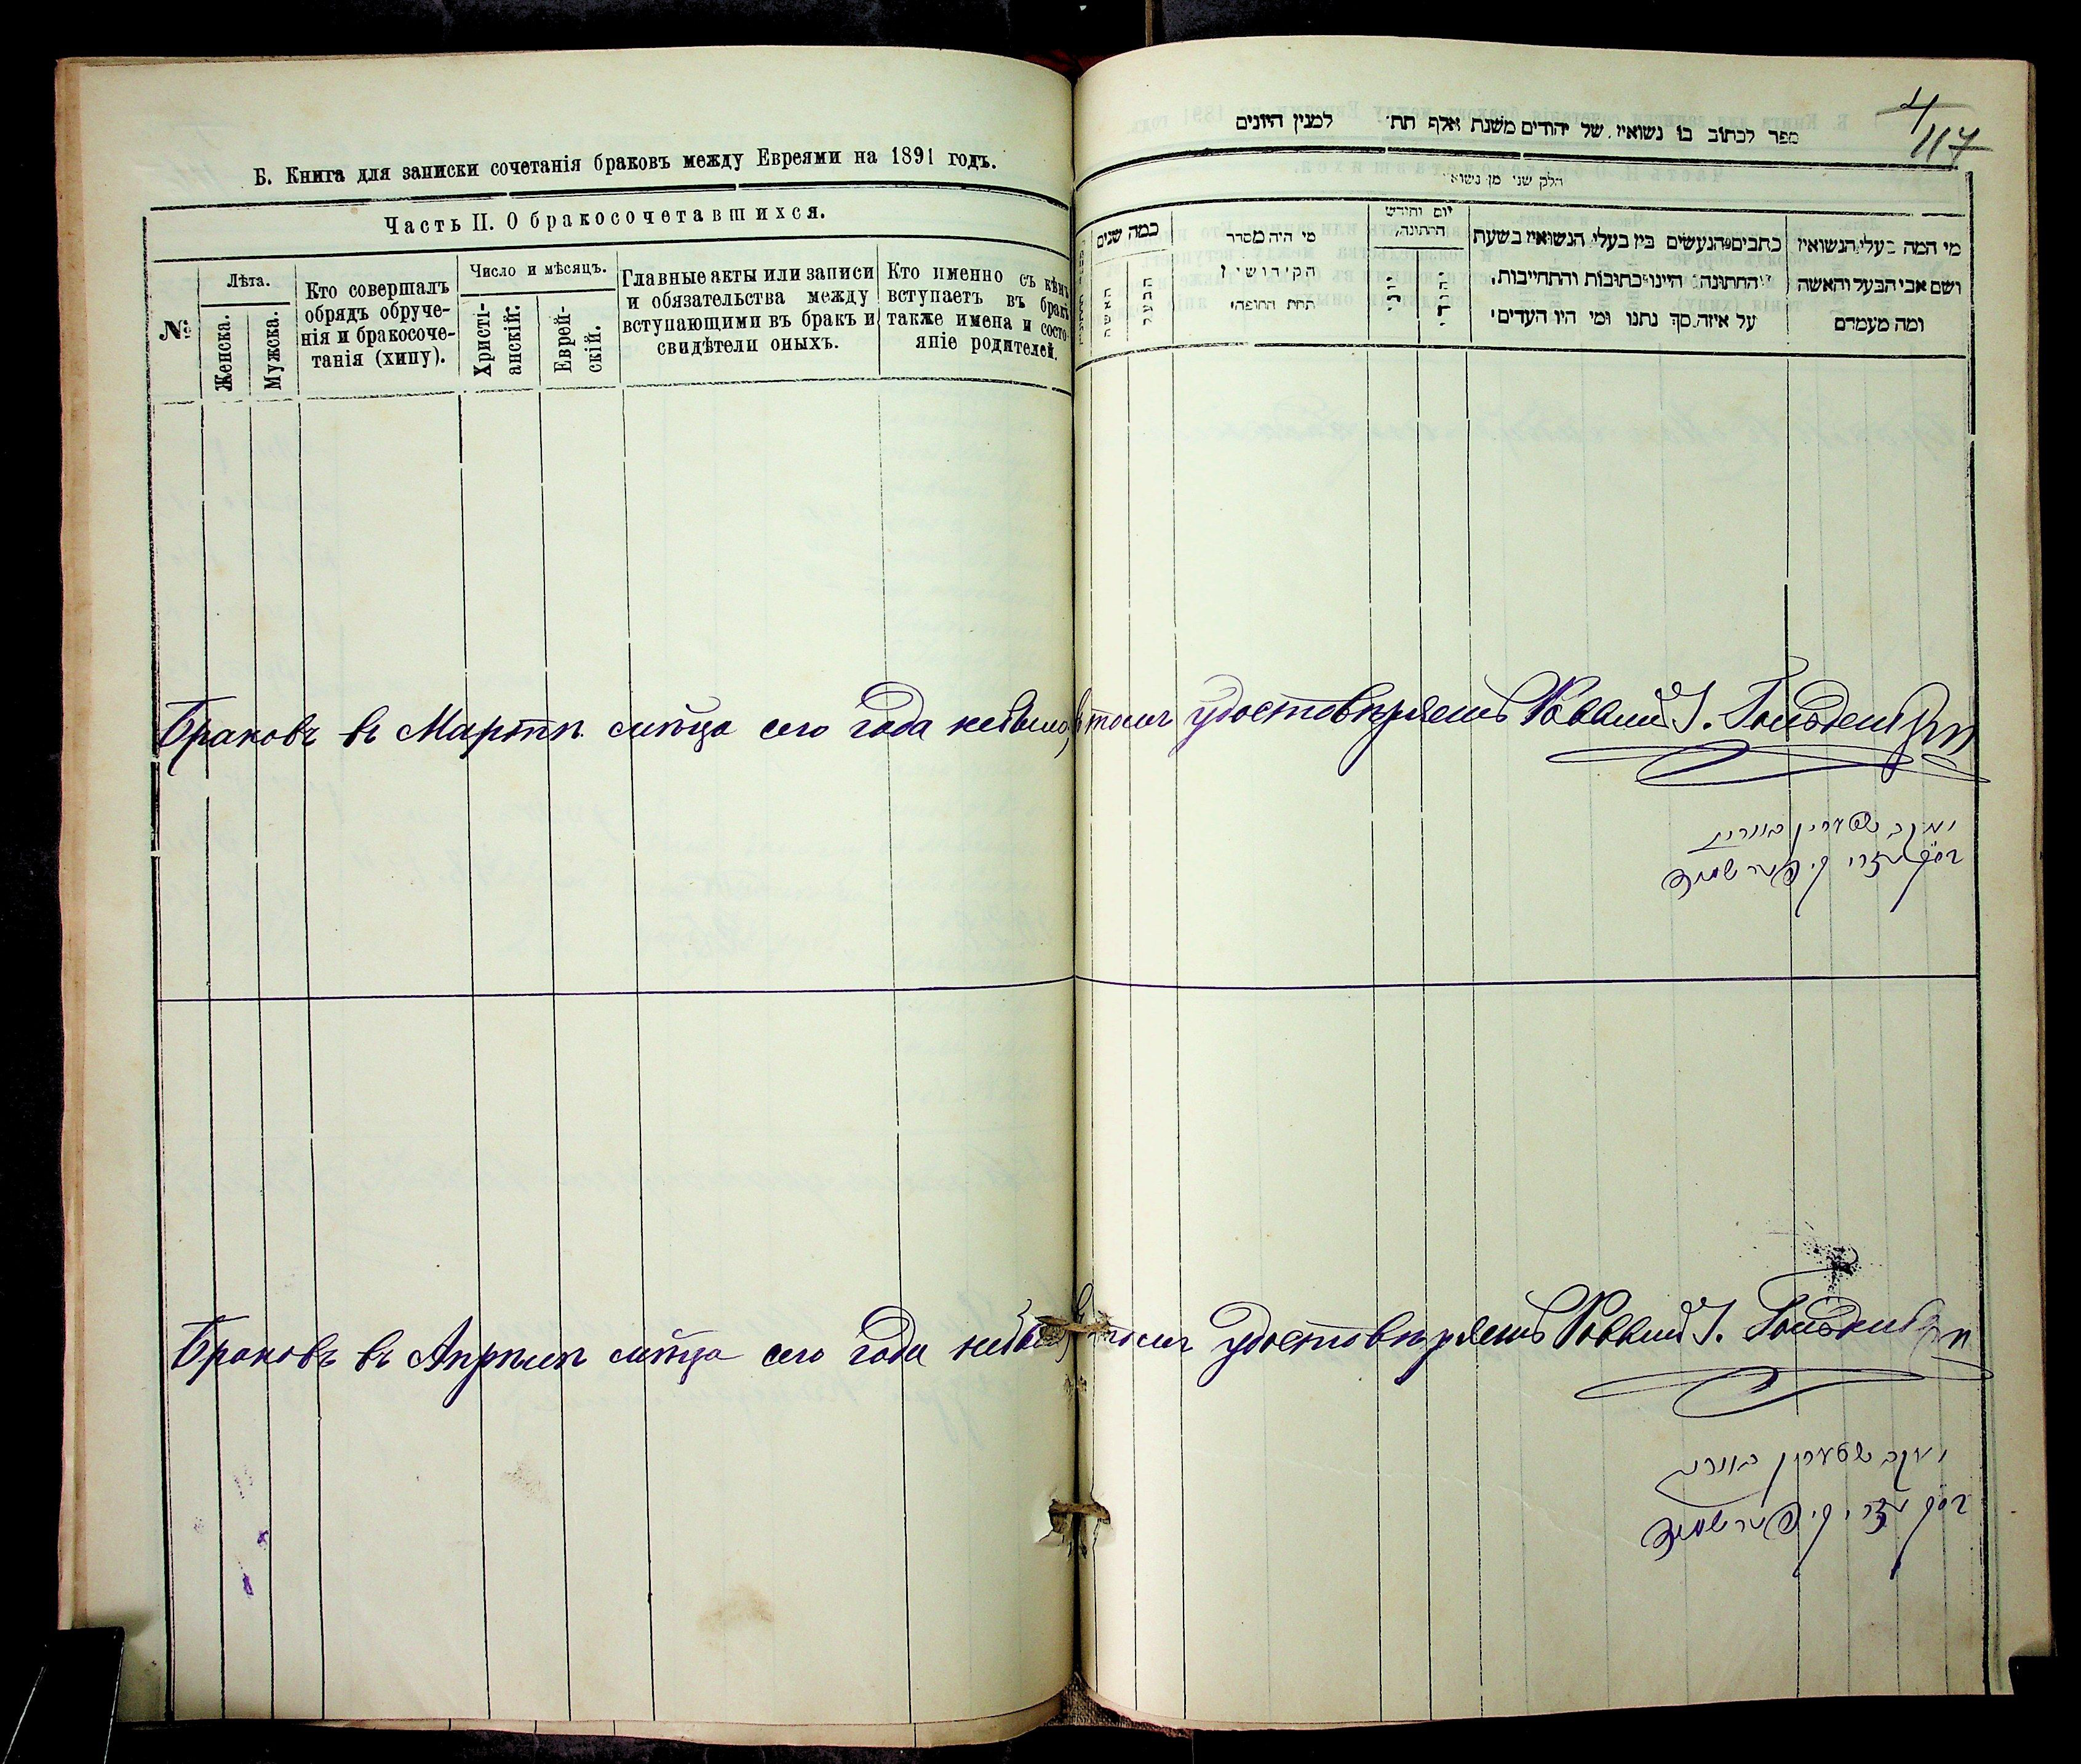 Б. Книга для записки сочетанія браковъ между Евреями на 1891 годъ.
Часть II. О бракосочетавшихся.
№
Лѣта.
Женска.
Мужска.
Кто совершалъ
обрядъ обруче-
нія и бракосоче-
танія (хипу).
Число и мѣсяцъ.
Христі-
анскій.
Еврей-
скій.
Главные акты или записи
и обязательства между
вступающими въ бракъ и
свидѣтели оныхъ.
Кто именно съ кѣмъ
вступаетъ въ бракъ
также имена и состо-
яніе родителей.
4
117
ספר לכתוב בו נשואין של יהודים משנת אלף תת למנין היונים
חלק שני מן נשואי
מי המה בעלי הנשואין
ושם אבי הבעל והאשה
ומה מעמדם
כתבים הנעשים בין בעלי הנשואין בשעת
החתונה היינו כתובות והתחייבות,
על איזה סך נתנו ומי היו העדים
יום וחודש
החתונה,
יוני
יהודי
מי היה מסדר
הקידושין
תחת החופה
כמה שנים
הבעל
האשה
Браковъ въ Мартѣ м‑ца сего года небыло, въ томъ удостовѣряемъ Раввинъ І.
יעקב
Браковъ въ Апрѣлѣ м‑ца сего года небыло, въ томъ удостовѣряемъ Раввинъ І.
יעקב